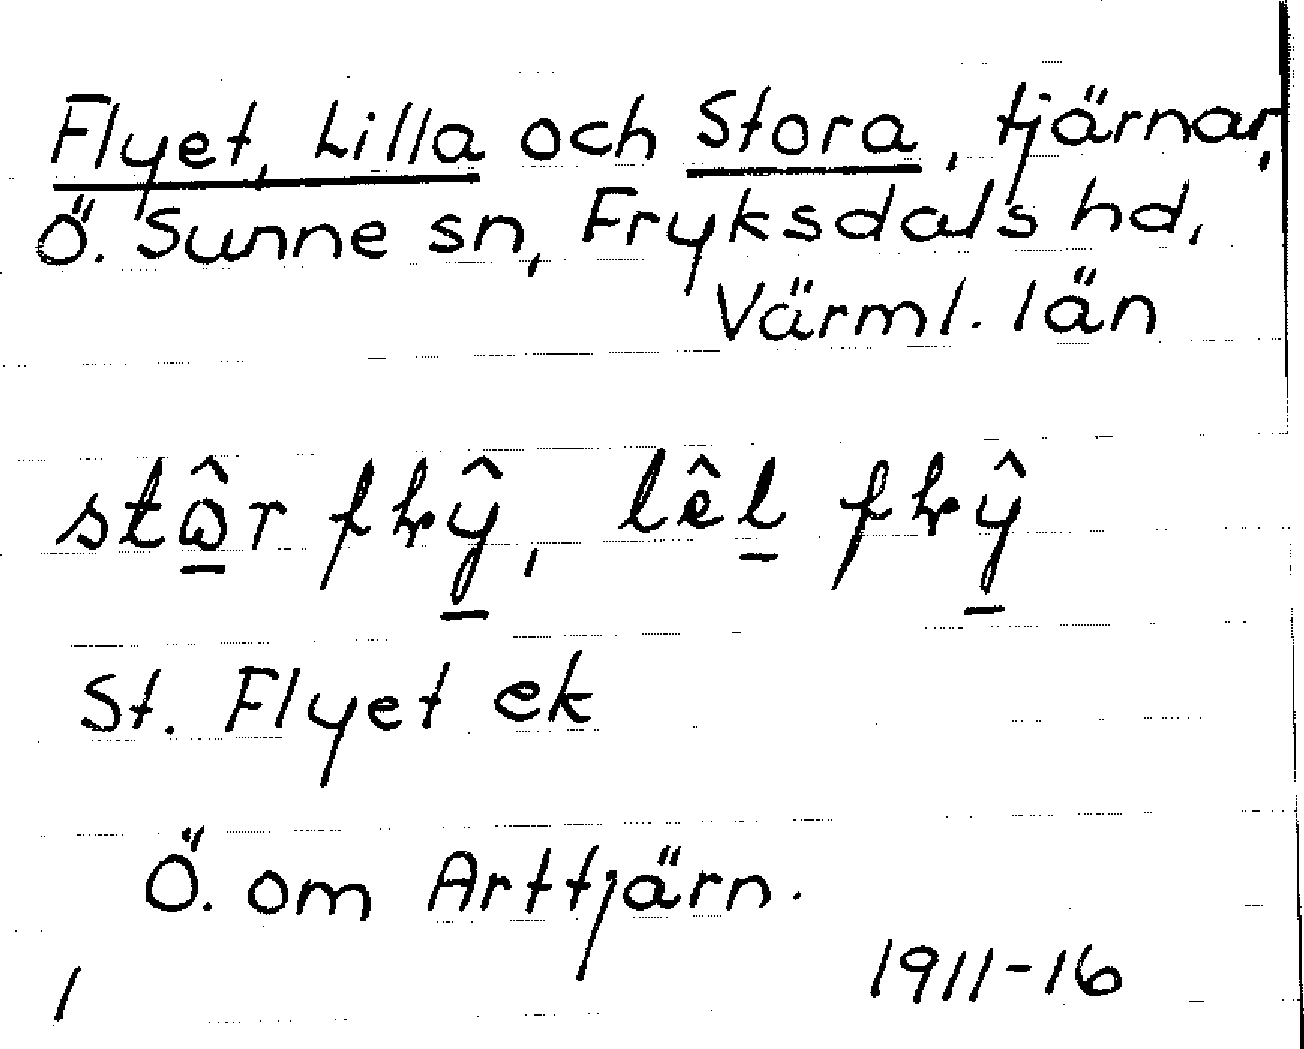 Flyet, Lilla och Stora, tjärnar,
Ö. Sunne sn, Fryksdals hd,
Värml. län
St. Flyet ek
Ö. om Arttjärn.
1 1911-16